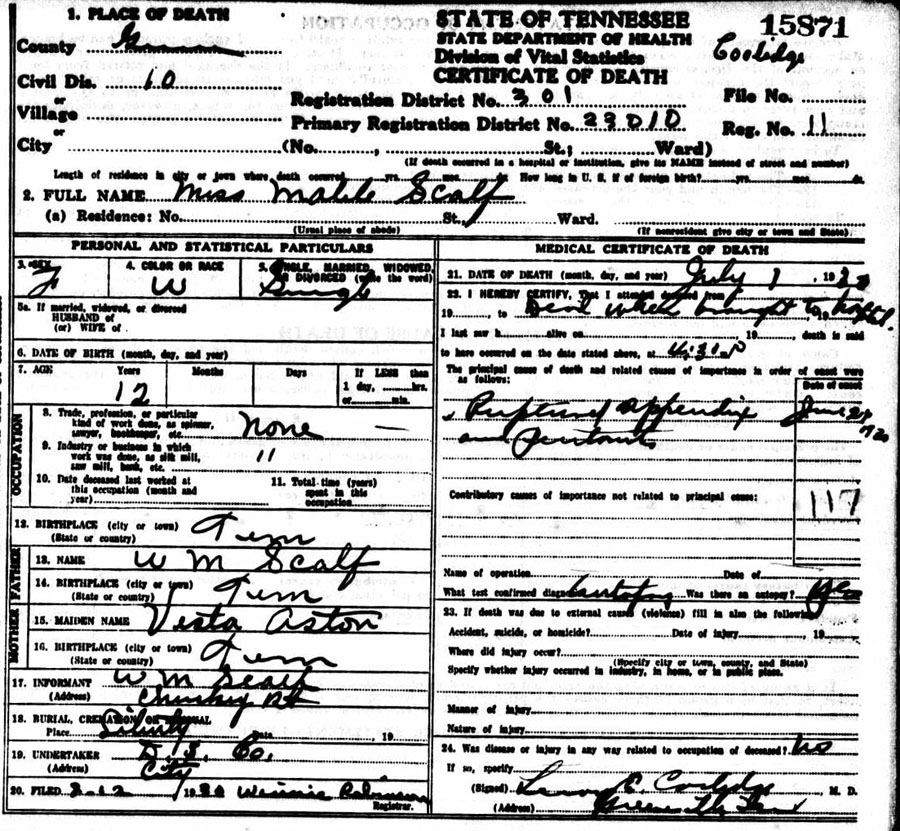 1. PLACE OF DEATH
County
Civil Dis. 10
or
Village
or
City (No. , St.; Ward)
STATE OF TENNESSEE
STATE DEPARTMENT OF HEALTH
Division of Vital Statistics
CERTIFICATE OF DEATH
15871
Coolidge
Registration District No. 301
File No.
Primary Registration District No. 23010
Reg. No. 11
(If death occurred in a hospital or institution, give its NAME instead of street and number)
Length of residence in city or town where death occurred yrs. mos. ds. How long in U. S. if of foreign birth? yrs. mos. ds.
2. FULL NAME Miss Scalf
(a) Residence: No. St., Ward.
(Usual place of abode) (If nonresident give city or town and State)
PERSONAL AND STATISTICAL PARTICULARS
3. SEX F
4. COLOR OR RACE W
5. SINGLE, MARRIED, WIDOWED, OR DIVORCED (write the word) Single
5a. If married, widowed, or divorced
HUSBAND of
(or) WIFE of
6. DATE OF BIRTH (month, day, and year)
7. AGE Years Months Days If LESS than
12 1 day, hrs.
or min.
OCCUPATION
8. Trade, profession, or particular
kind of work done, as spinner,
sawyer, bookkeeper, etc. None —
9. Industry or business in which
work was done, as silk mill,
saw mill, bank, etc. "
10. Date deceased last worked at
this occupation (month and
year)
11. Total time (years)
spent in this
occupation
12. BIRTHPLACE (city or town)
(State or country) Tenn
FATHER
13. NAME W M Scalf
14. BIRTHPLACE (city or town)
(State or country) Tenn
MOTHER
15. MAIDEN NAME Vesta Aston
16. BIRTHPLACE (city or town)
(State or country) Tenn
17. INFORMANT W M Scalf
(Address) Chuckey Rt
18. BURIAL, CREMATION OR REMOVAL
Place Date 19
19. UNDERTAKER D. S. Co.
City
20. FILED 2-12 19 Winnie Robinson
Registrar.
MEDICAL CERTIFICATE OF DEATH
21. DATE OF DEATH (month, day, and year) July 1, 19
22. I HEREBY CERTIFY, That I attended deceased from
19 , to Dead when brought to hospital.
I last saw h alive on 19 , death is said
to have occurred on the date stated above, at
The principal cause of death and related causes of importance in order of onset were
as follows:
Date of onset
Ruptured appendix June
and Peritonitis
Contributory causes of importance not related to principal cause:
117
Name of operation Date of
What test confirmed diagnosis? autopsy Was there an autopsy? yes
23. If death was due to external causes (violence) fill in also the following:
Accident, suicide, or homicide? Date of injury , 19
Where did injury occur?
(Specify city or town, county, and State)
Specify whether injury occurred in industry, in home, or in public place.
Manner of injury
Nature of injury
24. Was disease or injury in any way related to occupation of deceased? No
If so, specify
(Signed) Leroy E. Coolidge M. D.
(Address) Greeneville Tenn